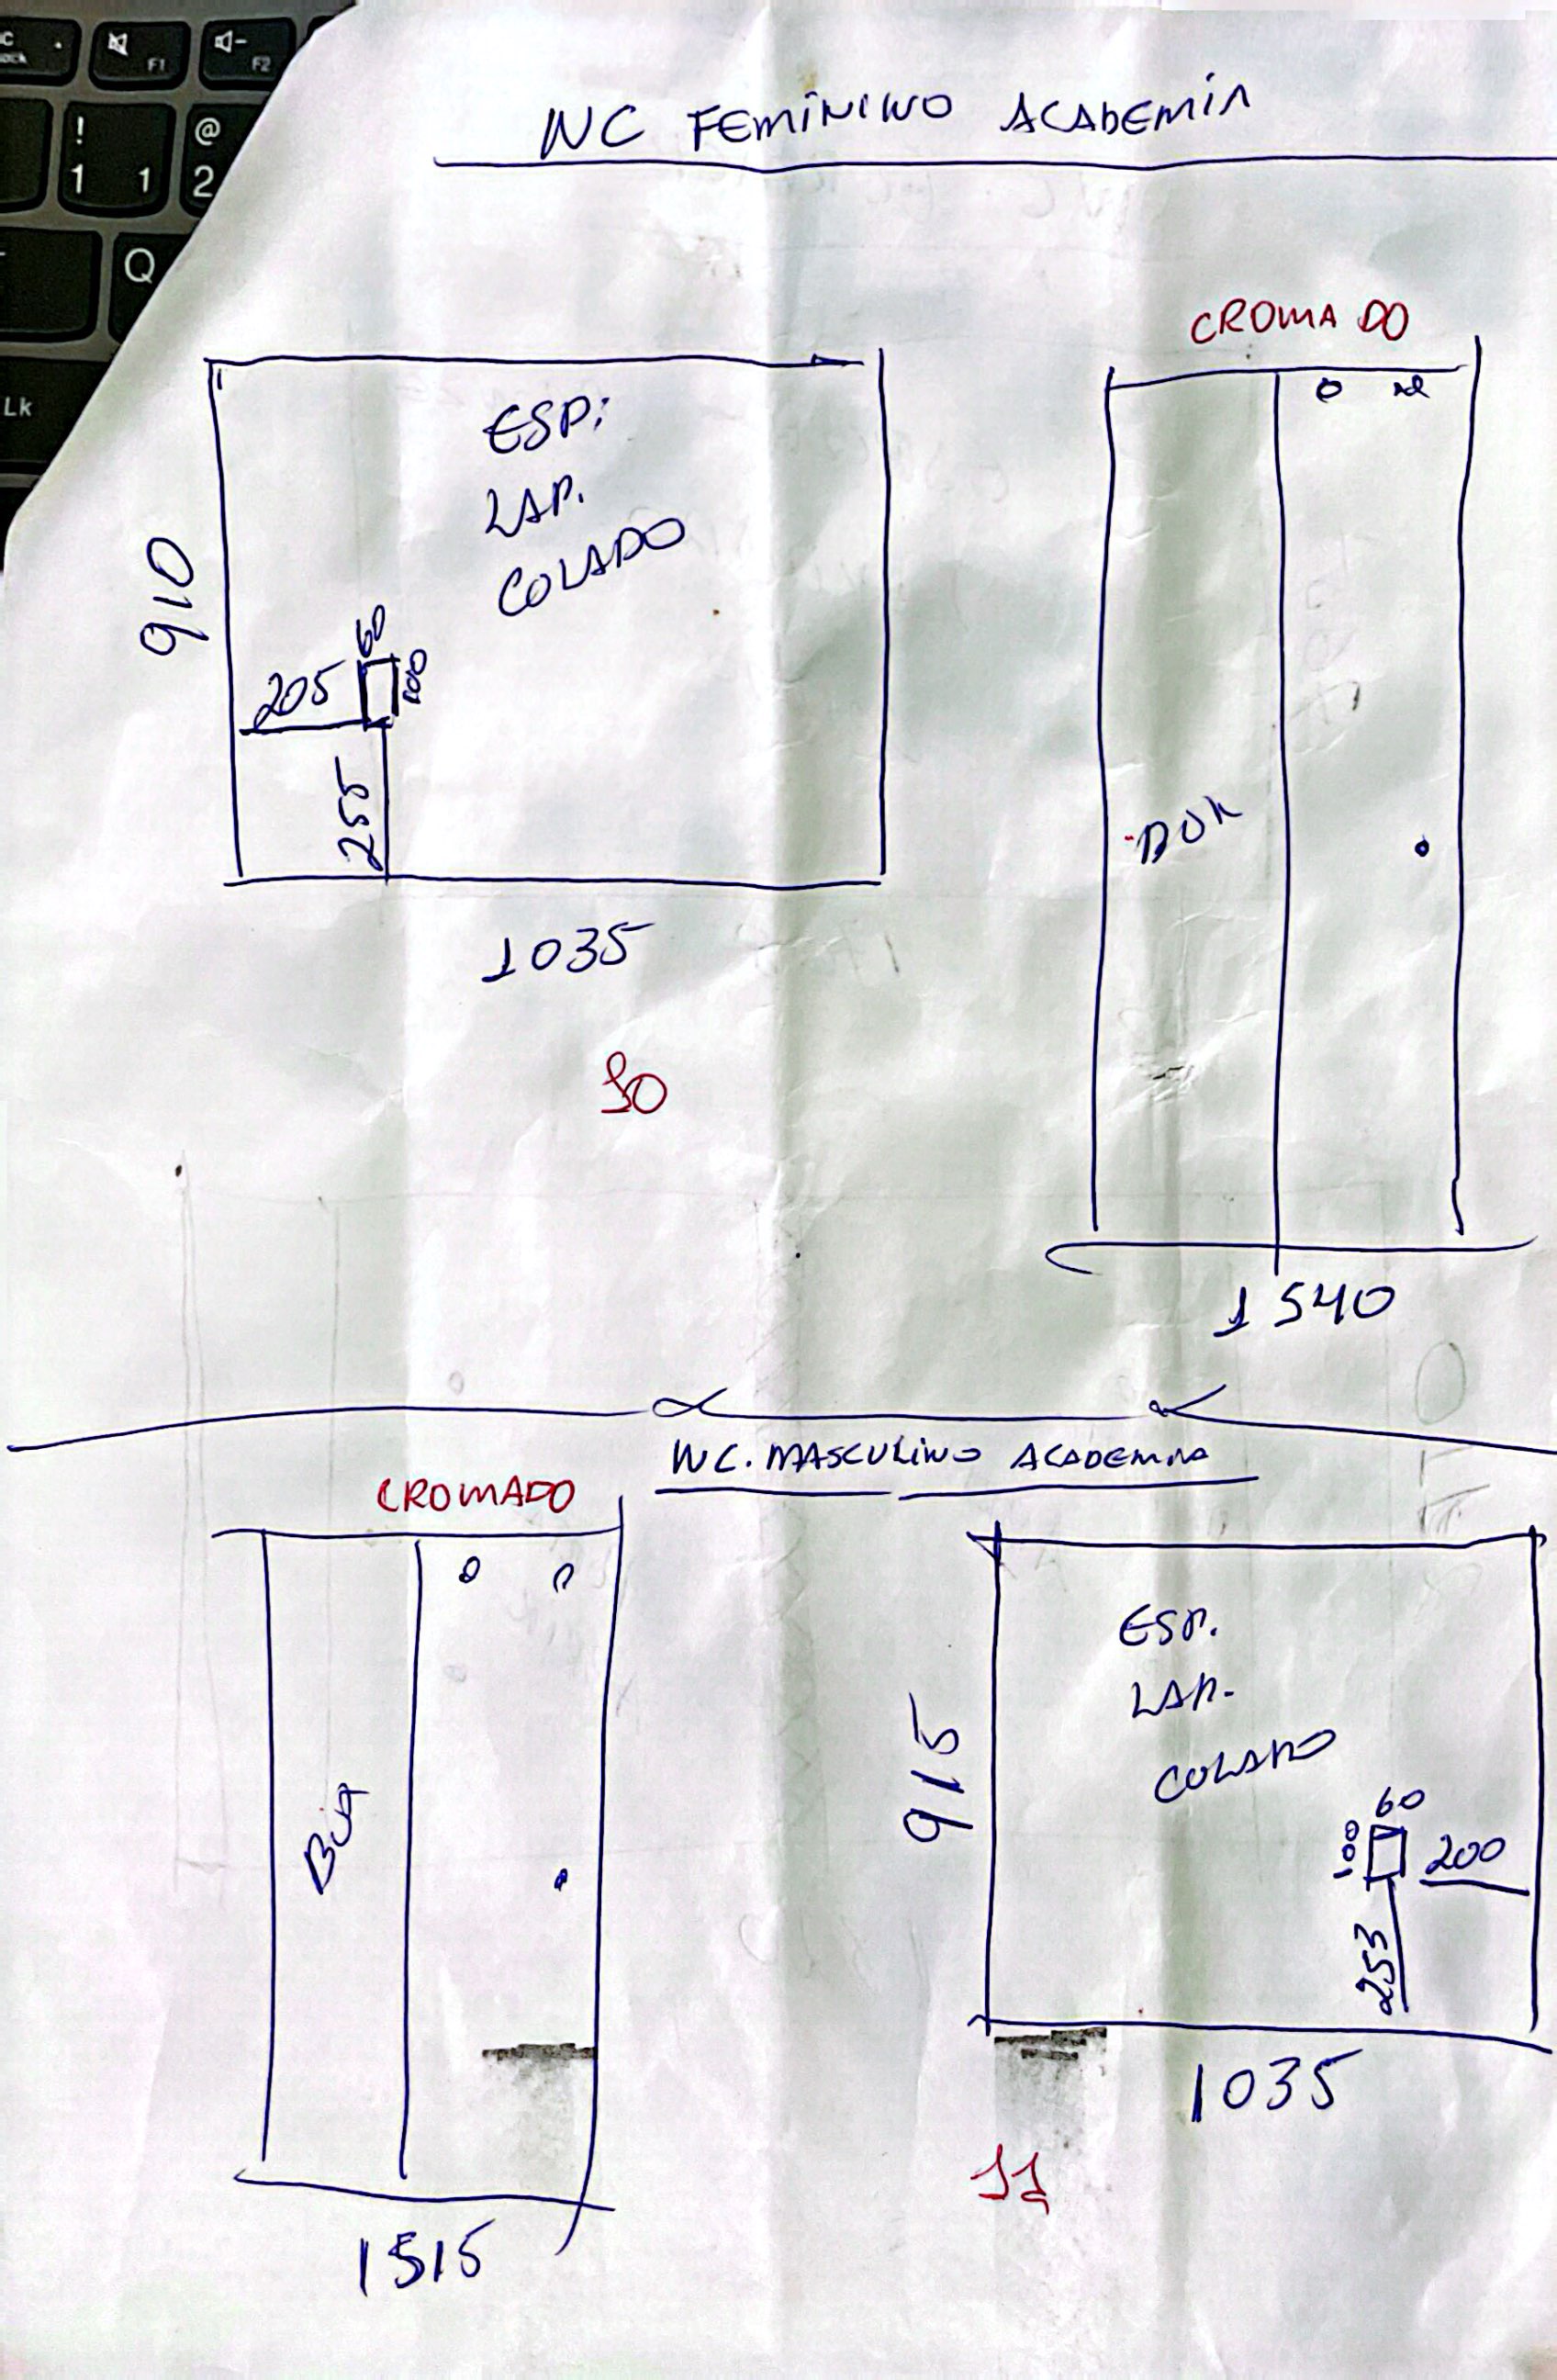 WC FEMININO ACADEMIA
CROMADO
ESP:
LAP.
COLADO
910
60
100
205
255
1035
1540
10
WC. MASCULINO ACADEMIA
CROMADO
ESP.
LAP.
COLADO
915
60
100
200
253
1035
1515
11
! 1 1
@ 2
F1
F2
Q
Lk